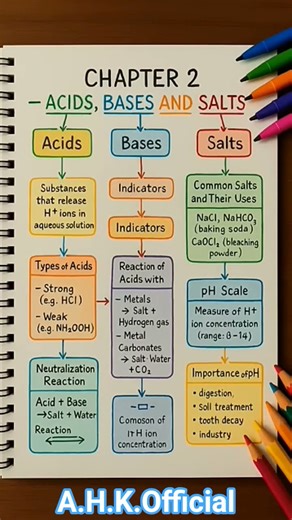 CHAPTER 2
– ACIDS, BASES AND SALTS
Acids
Substances
that release
H+ ions in
aqueous solution
Types of Acids
– Strong
(e.g. HCl)
– Weak
(e.g. NH₂OOH)
Neutralization
Reaction
Acid + Base
→Salt + Water
Reaction
Bases
Indicators
Indicators
Reaction of
Acids with
– Metals
→ Salt +
Hydrogen gas
– Metal
Carbonates
→ Salt Water
+CO₂
Comoson of
H ion
concentration
Salts
Common Salts
and Their Uses
NaCl, NaHCO₃
(baking soda)
CaOCl₂ (bleaching
powder)
pH Scale
Measure of H+
ion concentration
(range: 0–14)
Importance of pH
• digestion,
• soll treatment
• tooth decay
• industry
A.H.K.Official